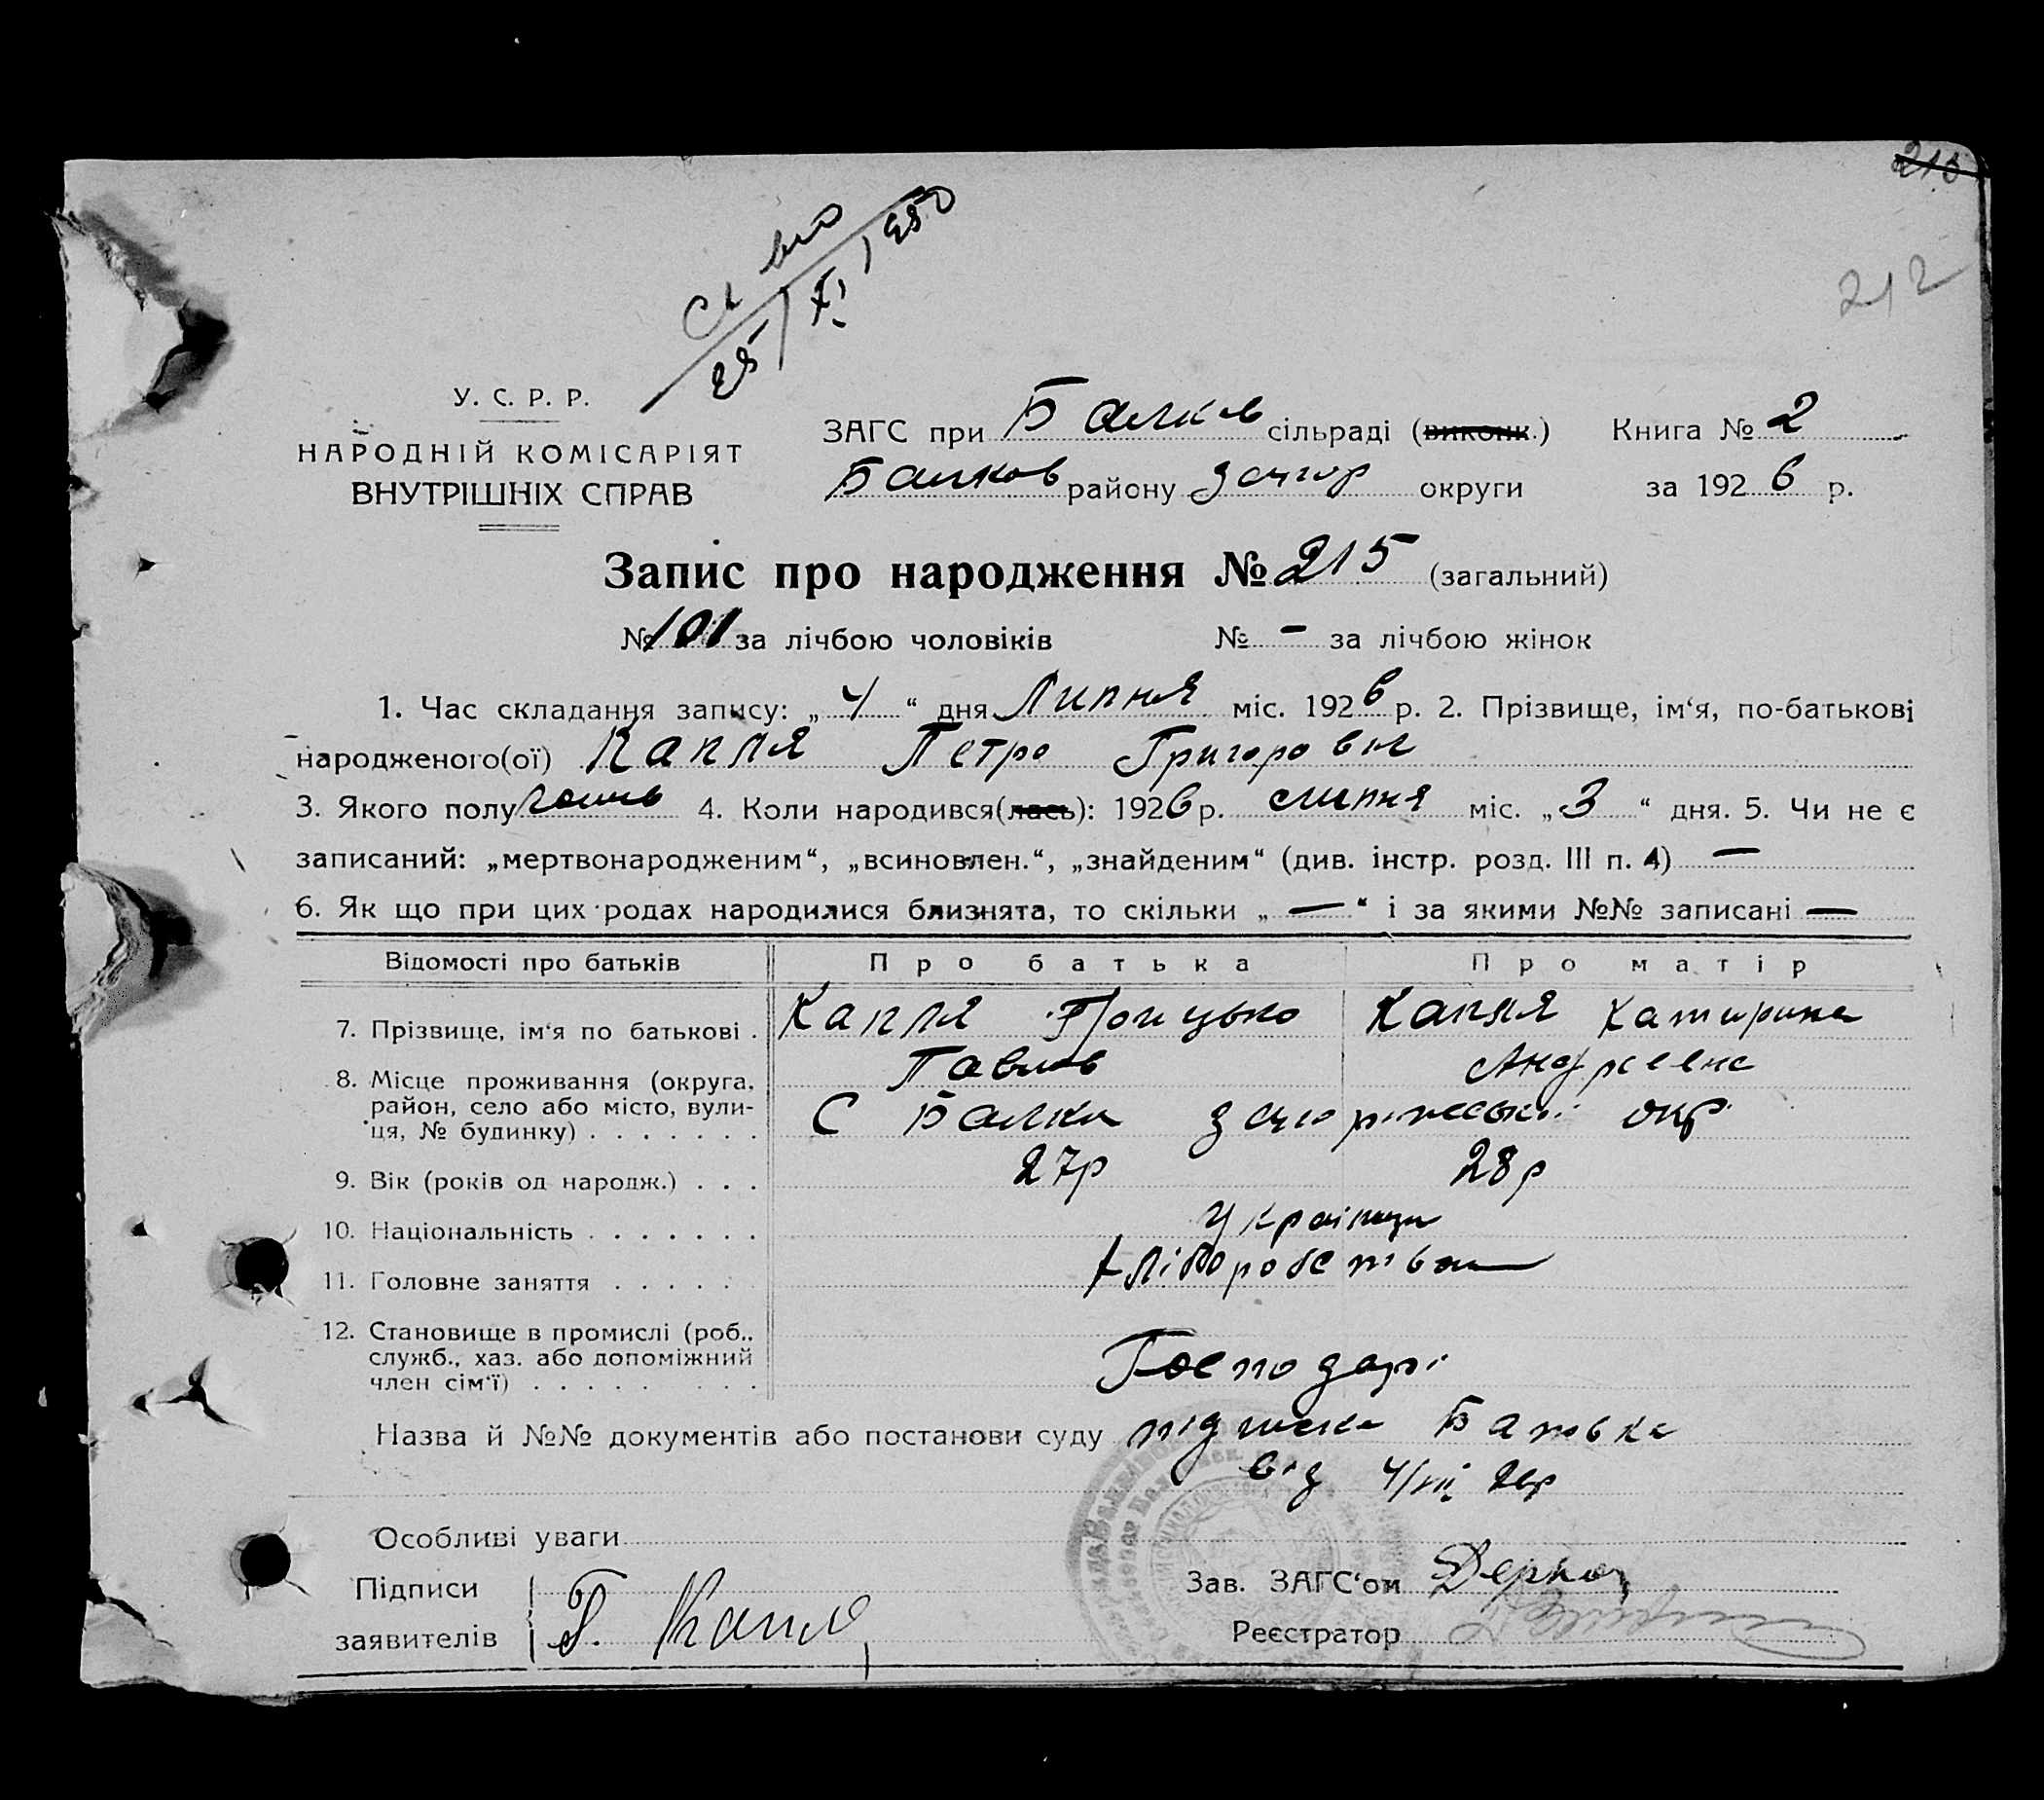 210
212
25/XI 1950
У. С. Р. Р.
НАРОДНІЙ КОМІСАРІЯТ
ВНУТРІШНІХ СПРАВ
ЗАГС при Балків сільраді (виконк.) Книга № 2
Балков району Запор округи за 1926 р.
Запис про народження № 215 (загальний)
№ 101 за лічбою чоловіків № — за лічбою жінок
1. Час складання запису: „4“ дня Липня міс. 1926 р. 2. Прізвище, ім‘я, по-батькові
народженого(ої) Капля Петро Григоровіч
3. Якого полу 4. Коли народився(лась): 1926 р. липня міс. „3“ дня. 5. Чи не є
записаний: „мертвонародженим“, „всиновлен.“, „знайденим“ (див. інстр. розд. III п. 4) —
6. Як що при цих родах народилися близнята, то скільки „—“ і за якими №№ записані —
Відомості про батьків Про батька Про матір
7. Прізвище, ім‘я по батькові . Капля Грицько Капля Катирина
Павлов Андреевна
8. Місце проживання (округа, район, село або місто, вулиця, № будинку) . . . . . . . С Балки Запоріжськой окр
9. Вік (років од народж.) . . . 27р 28р
10. Національність . . . . . . . Українци
11. Головне заняття . . . . . Хліборобство
12. Становище в промислі (роб., служб., хаз. або допоміжний член сім‘ї) . . . . . . . . Господарі
Назва й №№ документів або постанови суду підписка Батька
від 4/VII 26р
Особливі уваги
Підписи
заявителів Г. Капля
Зав. ЗАГС‘ом
Реєстратор